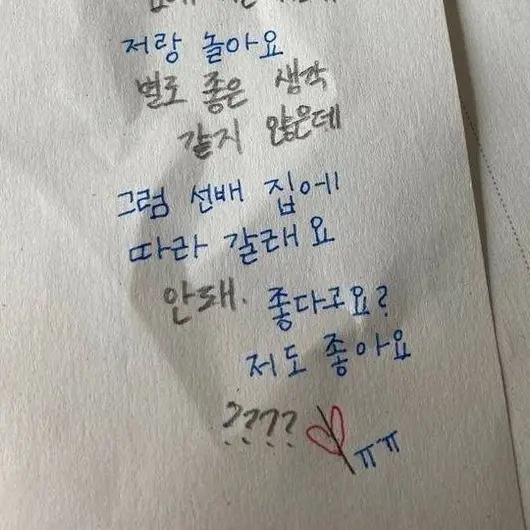 저랑 놀아요
별로 좋은 생각
같지 않은데
그럼 선배 집에
따라 갈래요
안돼. 좋다고요?
저도 좋아요
???? ㅠㅠ